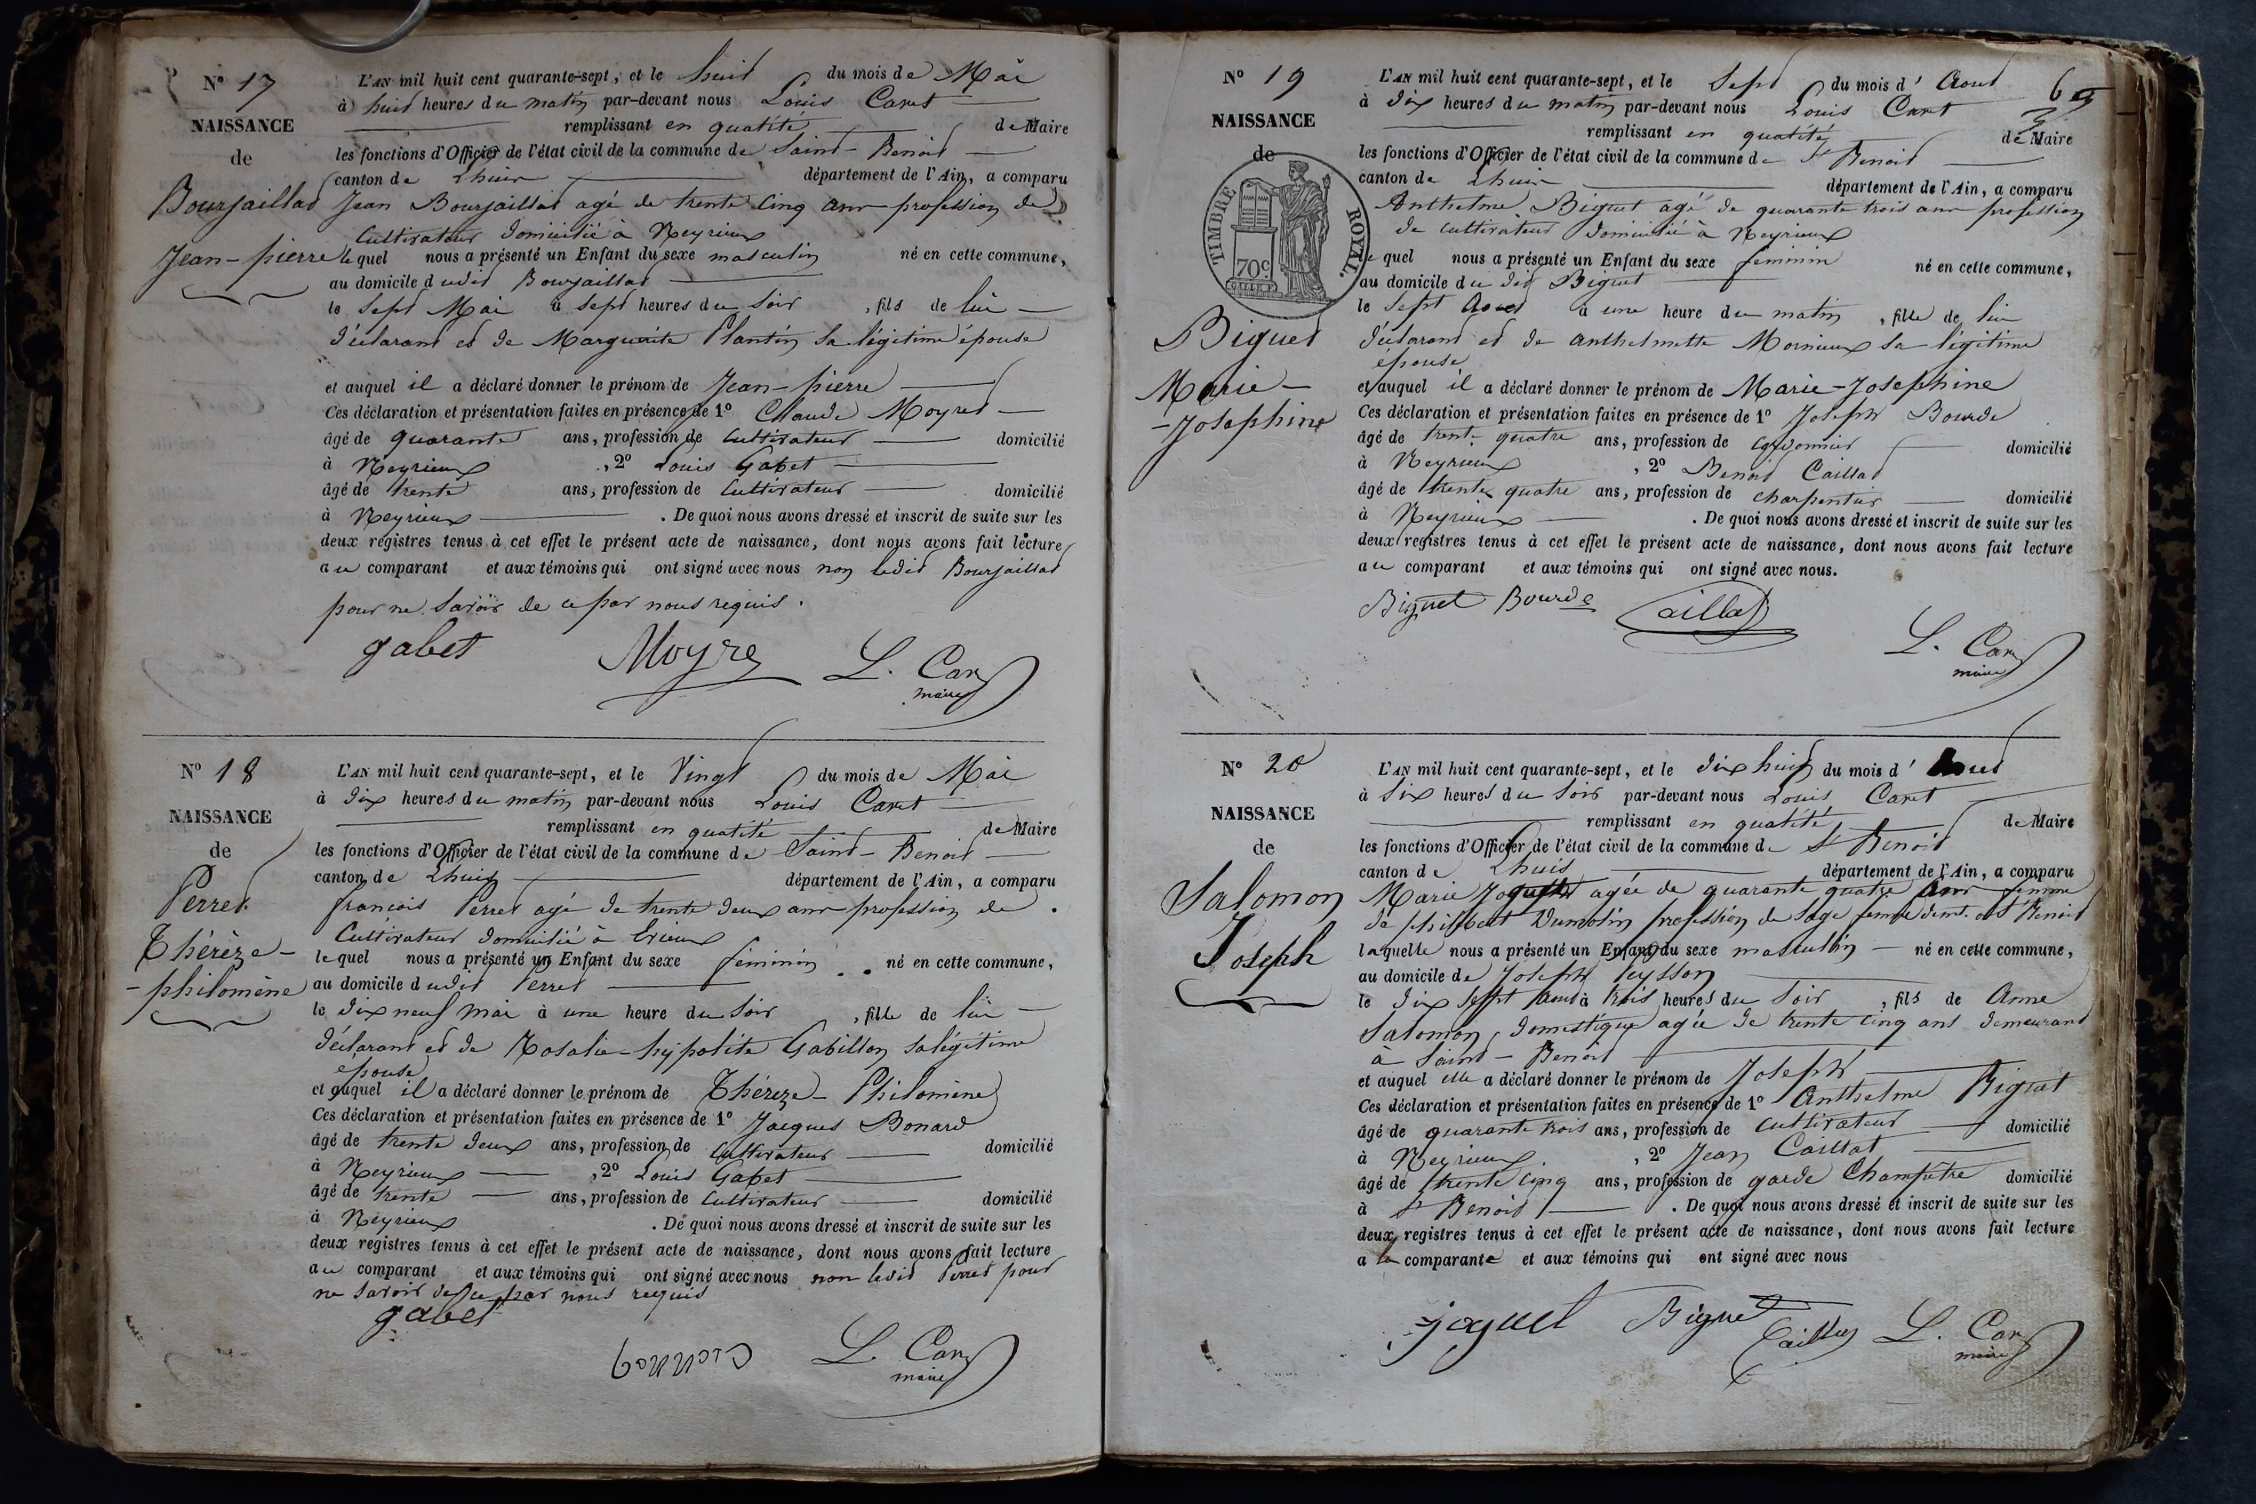 N° 17
NAISSANCE
de
Bourjaillad
Jean-pierre
L'AN mil huit cent quarante-sept, et le huit du mois de Mai
à huit heures du matin par-devant nous Louis Caret
remplissant en qualité de Maire
les fonctions d'Officier de l'état civil de la commune de Saint-Benoit
canton de Lhuis département de l'Ain, a comparu
Jean Bourjaillad agé de trente cinq ans profession de
cultivateur domicilié à Neyrieux
lequel nous a présenté un Enfant du sexe masculin né en cette commune,
au domicile dudit Bourjaillad
le sept Mai à sept heures du soir, fils de lui
déclarant et de Marguerite Plantin sa légitime épouse
et auquel il a déclaré donner le prénom de Jean-pierre
Ces déclaration et présentation faites en présence de 1° Claude Moyret
âgé de quarante ans, profession de cultivateur domicilié
à Neyrieux, 2° Louis Gabet
âgé de trente ans, profession de cultivateur domicilié
à Neyrieux. De quoi nous avons dressé et inscrit de suite sur les
deux registres tenus à cet effet le présent acte de naissance, dont nous avons fait lecture
au comparant et aux témoins qui ont signé avec nous non ledit Bourjaillad
pour ne savoir de ce par nous requis.
gabet Moyre L. Caret
maire
N° 18
NAISSANCE
de
Perret
Thérèze-
-philomène
L'AN mil huit cent quarante-sept, et le Vingt du mois de Mai
à dix heures du matin par-devant nous Louis Caret
remplissant en qualité de Maire
les fonctions d'Officier de l'état civil de la commune de Saint-Benoit
canton de Lhuis département de l'Ain, a comparu
françois Perret agé de trente deux ans profession de
cultivateur domicilié à Crieux
lequel nous a présenté un Enfant du sexe féminin né en cette commune,
au domicile dudit Perret
le dix neuf mai à une heure du soir, fille de lui
déclarant et de Rosalie-hypolite Gabillon sa légitime
épouse
et auquel il a déclaré donner le prénom de Thérèze-Philomène
Ces déclaration et présentation faites en présence de 1° Jacques Bonard
âgé de trente deux ans, profession de cultivateur domicilié
à Neyrieux, 2° Louis Gabet
âgé de trente ans, profession de cultivateur domicilié
à Neyrieux. De quoi nous avons dressé et inscrit de suite sur les
deux registres tenus à cet effet le présent acte de naissance, dont nous avons fait lecture
au comparant et aux témoins qui ont signé avec nous non ledit Perret pour
ne savoir de ce par nous requis
gabet L. Caret
maire
69
N° 19
NAISSANCE
de
TIMBRE ROYAL.
70c
Biguet
Marie-
-Josephine
L'AN mil huit cent quarante-sept, et le sept du mois d'Aout
à dix heures du matin par-devant nous Louis Caret
remplissant en qualité de Maire
les fonctions d'Officier de l'état civil de la commune de St Benoit
canton de Lhuis département de l'Ain, a comparu
Anthelme Biguet agé de quarante trois ans profession
de cultivateur domicilié à Neyrieux
lequel nous a présenté un Enfant du sexe féminin né en cette commune,
au domicile du dit Biguet
le sept Aout à une heure du matin, fille de lui
déclarant et de anthelmette Mornieux sa légitime
épouse
et auquel il a déclaré donner le prénom de Marie-Josephine
Ces déclaration et présentation faites en présence de 1° Joseph Bourde
âgé de trente quatre ans, profession de cordonnier domicilié
à Neyrieux, 2° Benoit Caillat
âgé de trente quatre ans, profession de charpentier domicilié
à Neyrieux. De quoi nous avons dressé et inscrit de suite sur les
deux registres tenus à cet effet le présent acte de naissance, dont nous avons fait lecture
au comparant et aux témoins qui ont signé avec nous.
Biguet Bourde Caillat
L. Caret
maire
N° 20
NAISSANCE
de
Salomon
Joseph
L'AN mil huit cent quarante-sept, et le dix huit du mois d'Aout
à six heures du soir par-devant nous Louis Caret
remplissant en qualité de Maire
les fonctions d'Officier de l'état civil de la commune de St Benoit
canton de Lhuis département de l'Ain, a comparu
Marie Joguet agée de quarante quatre ans femme
de philibert Dumolin profession de sage femme demt. à St Benoit
laquelle nous a présenté un Enfant du sexe masculin né en cette commune,
au domicile de Joseph Peysson
le dix sept aout à trois heures du soir, fils de Anne
Salomon, domestique agée de trente cinq ans demeurant
à Saint-Benoit
et auquel elle a déclaré donner le prénom de Joseph
Ces déclaration et présentation faites en présence de 1° Anthelme Biguet
âgé de quarante trois ans, profession de cultivateur domicilié
à Neyrieux, 2° Jean Caillat
âgé de trente cinq ans, profession de garde Champêtre domicilié
à St Benoit. De quoi nous avons dressé et inscrit de suite sur les
deux registres tenus à cet effet le présent acte de naissance, dont nous avons fait lecture
a la comparante et aux témoins qui ont signé avec nous
joguet Biguet Caillat L. Caret
maire